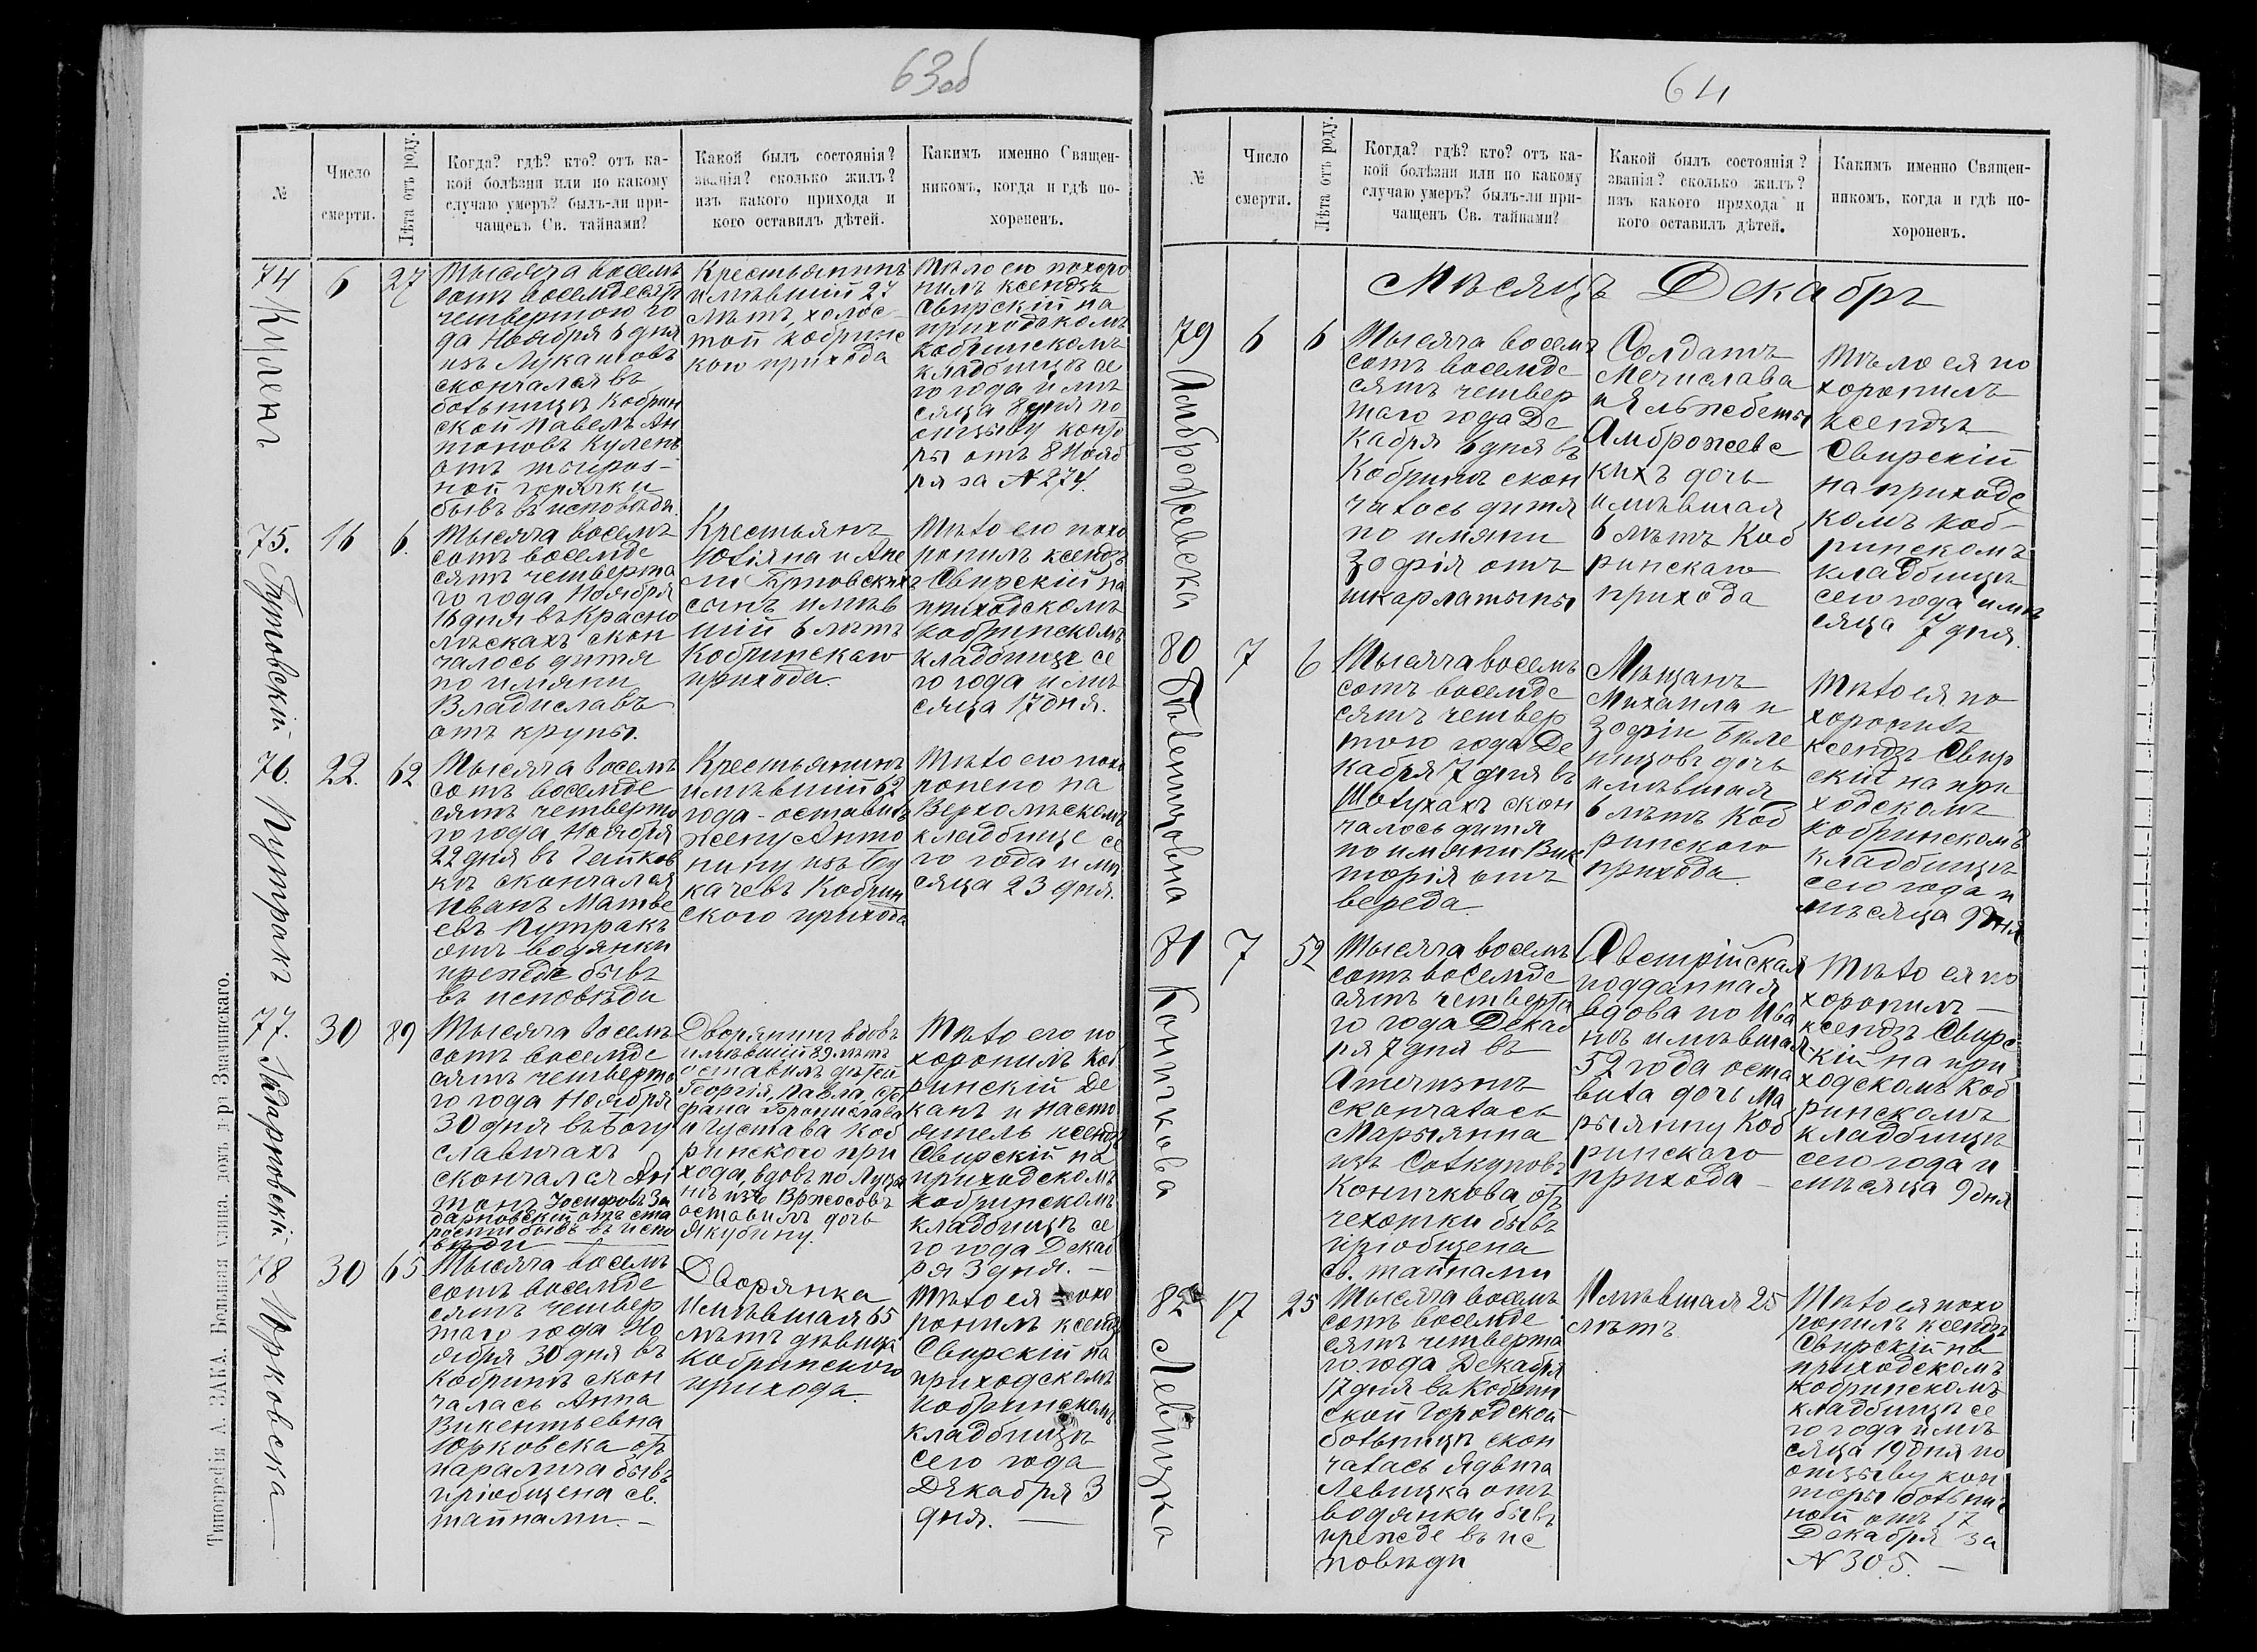 63об
№
Число
смерти.
Лѣта отъ роду.
Когда? гдѣ? кто? отъ ка-
кой болѣзни или по какому
случаю умеръ? былъ-ли при-
чащенъ Св. тайнами?
Какой былъ состоянія?
званія? сколько жилъ?
изъ какого прихода и
кого оставилъ дѣтей.
Какимъ именно Священ-
никомъ, когда и гдѣ по-
хороненъ.
74
Куленъ
6
27
Тысяча восемь
сотъ восемдесятъ
четвертого го
да Ноября 6 дня
изъ Лукашовъ
скончался въ
больницѣ Кобрин
ской Павелъ Ан
тоновъ Куленъ
отъ тифоз-
ной горячки
бывъ въ исповѣди.
Крестьянинъ
имѣвшій 27
лѣтъ, холос-
той кобринс
кого прихода
Тѣло его похоро
нилъ ксендзъ
Свирскій на
приходскомъ
Кобринскомъ
кладбищѣ се
го года и мѣ
сяца 8 дня по
отзыву конто
ры отъ 8 Нояб
ря за N 274.
75.
Бутовскій
16
6.
Тысяча восемь
сотъ восемде
сятъ четверта
го года Ноября
16 дня въ Красно
лѣскахъ скон
чалось дитя
по имяни
Владиславъ
отъ крупы.
Крестьянъ
Юліяна и Ане
ли Бутовскихъ
сынъ имѣв
шій 6 лѣтъ
Кобринскаго
прихода.
Тѣло его похо
ронилъ ксендзъ
Свирскій на
приходскомъ
кобринскомъ
кладбище се
го года и мѣ
сяца 17 дня.
76.
Путракъ
22.
62
Тысяча восемь
сотъ восемде
сятъ четверто
го года Ноября
22 дня въ Гайков
кѣ скончался
Иванъ Матве
евъ Путракъ
отъ водянки
прежде бывъ
въ исповѣди
Крестьянинъ
имѣвшій 62
года - оставилъ
жену Анто
нину изъ Бу
качевъ Кобрин
ского прихода
Тѣло его похо
ронено на
Верхолѣскомъ
кладбище се
го года и мѣ
сяца 23 дня.
77.
Задарновскій
30
89
Тысяча восемь
сотъ восемде
сятъ четверто
го года Ноября
30 дня въ Богу
славичахъ
скончался Ан
тонъ Іосифовъ За
дарновскій отъ ста
рости бывъ въ испо
вѣди
Дворянинъ вдовъ
имѣвшій 89 лѣтъ
оставилъ дѣтей
Георгія, Павла, Сте
фана Бронислава
и Густава Коб
ринского при
хода, вдовъ по Луца
нѣ изъ Вржосовъ
оставилъ дочь
Якубину.
Тѣло его по
хоронилъ Коб
ринскій Де
канъ и Насто
ятель ксендзъ
Свирскій на
приходскомъ
кобринскомъ
кладбищѣ се
го года Декаб
ря 3 дня. —
78
Юрковска
30
65
Тысяча восемь
сотъ восемде
сятъ четвер
таго года Но
ября 30 дня въ
Кобринѣ скон
чалась Анна
Викентьевна
Юрковска отъ
паралича бывъ
пріобщена св.
тайнами. —
Дворянка
имѣвшая 65
лѣтъ дѣвица
Кобринского
прихода.
Тѣло ея похо
ронилъ ксендзъ
Свирскій на
приходскомъ
Кобринскомъ
кладбищѣ
сего года
Декабря 3
дня. —
Типографія А. ЗАКА. Большая улица, домъ Змачинскаго.
64
№
Число
смерти.
Лѣта отъ роду.
Когда? гдѣ? кто? отъ ка-
кой болѣзни или по какому
случаю умеръ? былъ-ли при-
чащенъ Св. тайнами?
Какой былъ состоянія?
званія? сколько жилъ?
изъ какого прихода и
кого оставилъ дѣтей.
Какимъ именно Священ-
никомъ, когда и гдѣ по-
хороненъ.
Мѣсяцъ Декабрь
79
Амброжевска
6
6
Тысяча восемь
сотъ восемде
сятъ четвер
таго года Де
кабря 6 дня въ
Кобринѣ скон
чалось дитя
по имяни
Зофія отъ
шкарлатыны
Солдатъ
Мечислава
и Эльжбеты
Амброжевс
кихъ дочь
имѣвшая
6 лѣтъ Коб
ринскаго
прихода
Тѣло ея по
хоронилъ
ксендзъ
Свирскій
на приходс
комъ коб-
ринскомъ
кладбищѣ
сего года и мѣ
сяца 7 дня.
80
Бѣленцовна
7
6
Тысяча восемь
сотъ восемде
сятъ четвер
того года Де
кабря 7 дня въ
Шолухахъ скон
чалось дитя
по имяни Вик
торія отъ
вереда.
Мѣщанъ
Михаила и
Зофіи Бѣле
нцовъ дочь
имѣвшая
6 лѣтъ Коб
ринского
прихода.
Тѣло ея по
хоронилъ
ксендзъ Свир
скій на при
ходскомъ
кобринскомъ
кладбищѣ
сего года и
мѣсяца 9 дня
81
Коничкова
7
52
Тысяча восемь
сотъ восемде
сятъ четверта
го года Декаб
ря 7 дня въ
Атечизнѣ
скончалась
Марыянна
изъ Солкуновъ
Коничкова отъ
чехотки бывъ
пріобщена
св. тайнами
Австрійская
подданная
вдова по Ива
нѣ имѣвшая
52 года оста
вила дочь Ма
рыянну Коб
ринскаго
прихода —
Тѣло ея по
хоронилъ —
ксендзъ Свирс
кій на при
ходскомъ Коб
ринскомъ
кладбищѣ
сего года и
мѣсяца 9 дня
82
Левицка
17
25
Тысяча восемь
сотъ восемде
сятъ четверта
го года Декабря
17 дня въ Кобрин
ской Городской
больницѣ скон
чалась Ядвига
Левицка отъ
водянки бывъ
прежде въ ис
повѣди
Имѣвшая 25
лѣтъ
Тѣло ея похо
ронилъ ксендзъ
Свирскій на
приходскомъ
Кобринскомъ
кладбищѣ се
го года и мѣ
сяца 19 дня по
отзыву кон
торы больнич
ной отъ 17
Декабря за
N 305. —